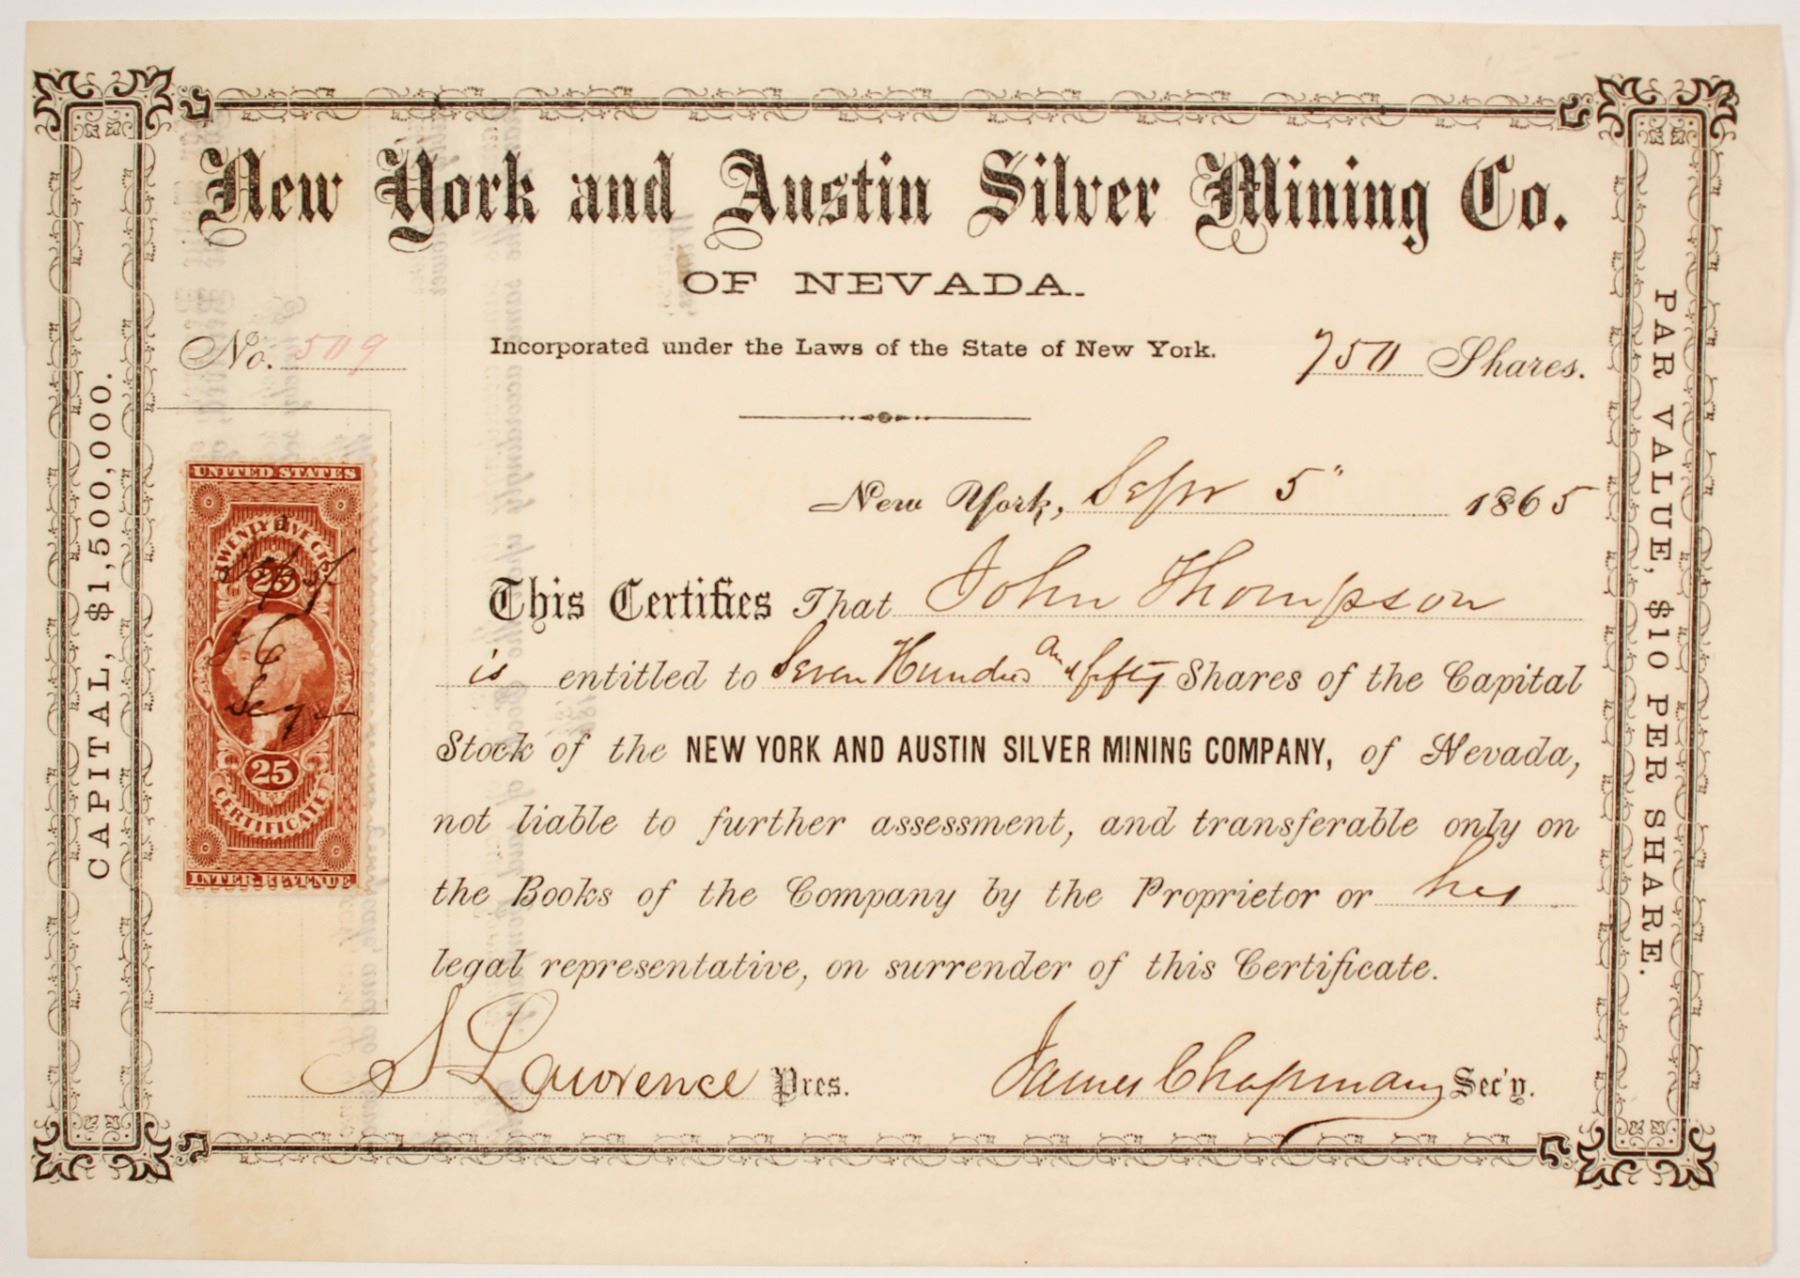 New York and Austin Silver Mining Co.
OF NEVADA.
No. 509
Incorporated under the Laws of the State of New York.
750 Shares.
CAPITAL, $1,500,000.
PAR VALUE, $10 PER SHARE.
New York, Sepr 5" 1865
This Certifies That John Thompson
is entitled to Seven Hundred and fifty Shares of the Capital
Stock of the NEW YORK AND AUSTIN SILVER MINING COMPANY, of Nevada,
not liable to further assessment, and transferable only on
the Books of the Company by the Proprietor or his
legal representative, on surrender of this Certificate.
S Lawrence Pres.
James Chapman Sec'y.
UNITED STATES
TWENTY FIVE CTS
25
25
CERTIFICATE
INTER. REVENUE